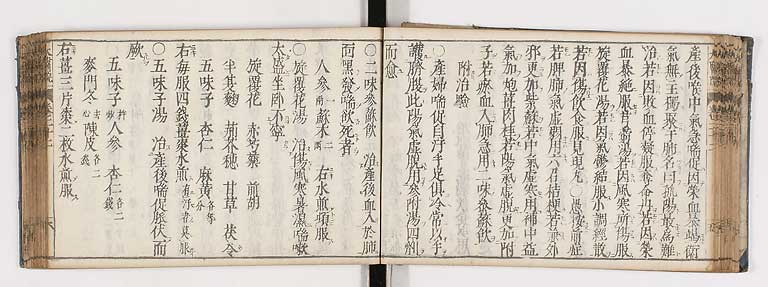 產後喉中氣急喘促因榮血暴竭衛
氣無主獨聚于肺名曰孤陽最為難
治若因敗血停凝服奪命丹若因榮
血暴絕服芎歸湯若因風寒所傷服
旋覆花湯若因氣鬱結服小調經散
若因傷飲食服見晛丸○愚按前症
若脾肺氣虛弱用六君桔梗若兼外
邪更加紫蘇若中氣虛寒用補中益
氣加炮薑肉桂若陽氣虛脫更加附
子若瘀血入肺急用二味參蘇飲
附治驗
○產婦喘促自汗手足俱冷常以手
護臍腹此陽氣虛脫用參附湯四劑
而愈
○二味參蘇飲 治產後血入於肺
面黑發喘欲死者
人參一兩 蘇木二兩 右水煎頓服
○旋覆花湯 治傷風寒暑濕喘嗽
太盛坐臥不寧
旋覆花 赤芍藥 前胡
半夏麯 荊芥穗 甘草 茯苓
五味子 杏仁 麻黃各等分
右每服四錢薑棗水煎有汗者莫服
○五味子湯 治產後喘促脈伏而
厥
五味子杵炒 人參 杏仁各二錢
麥門冬去心 陳皮各二錢
右薑三片棗二枚水煎服